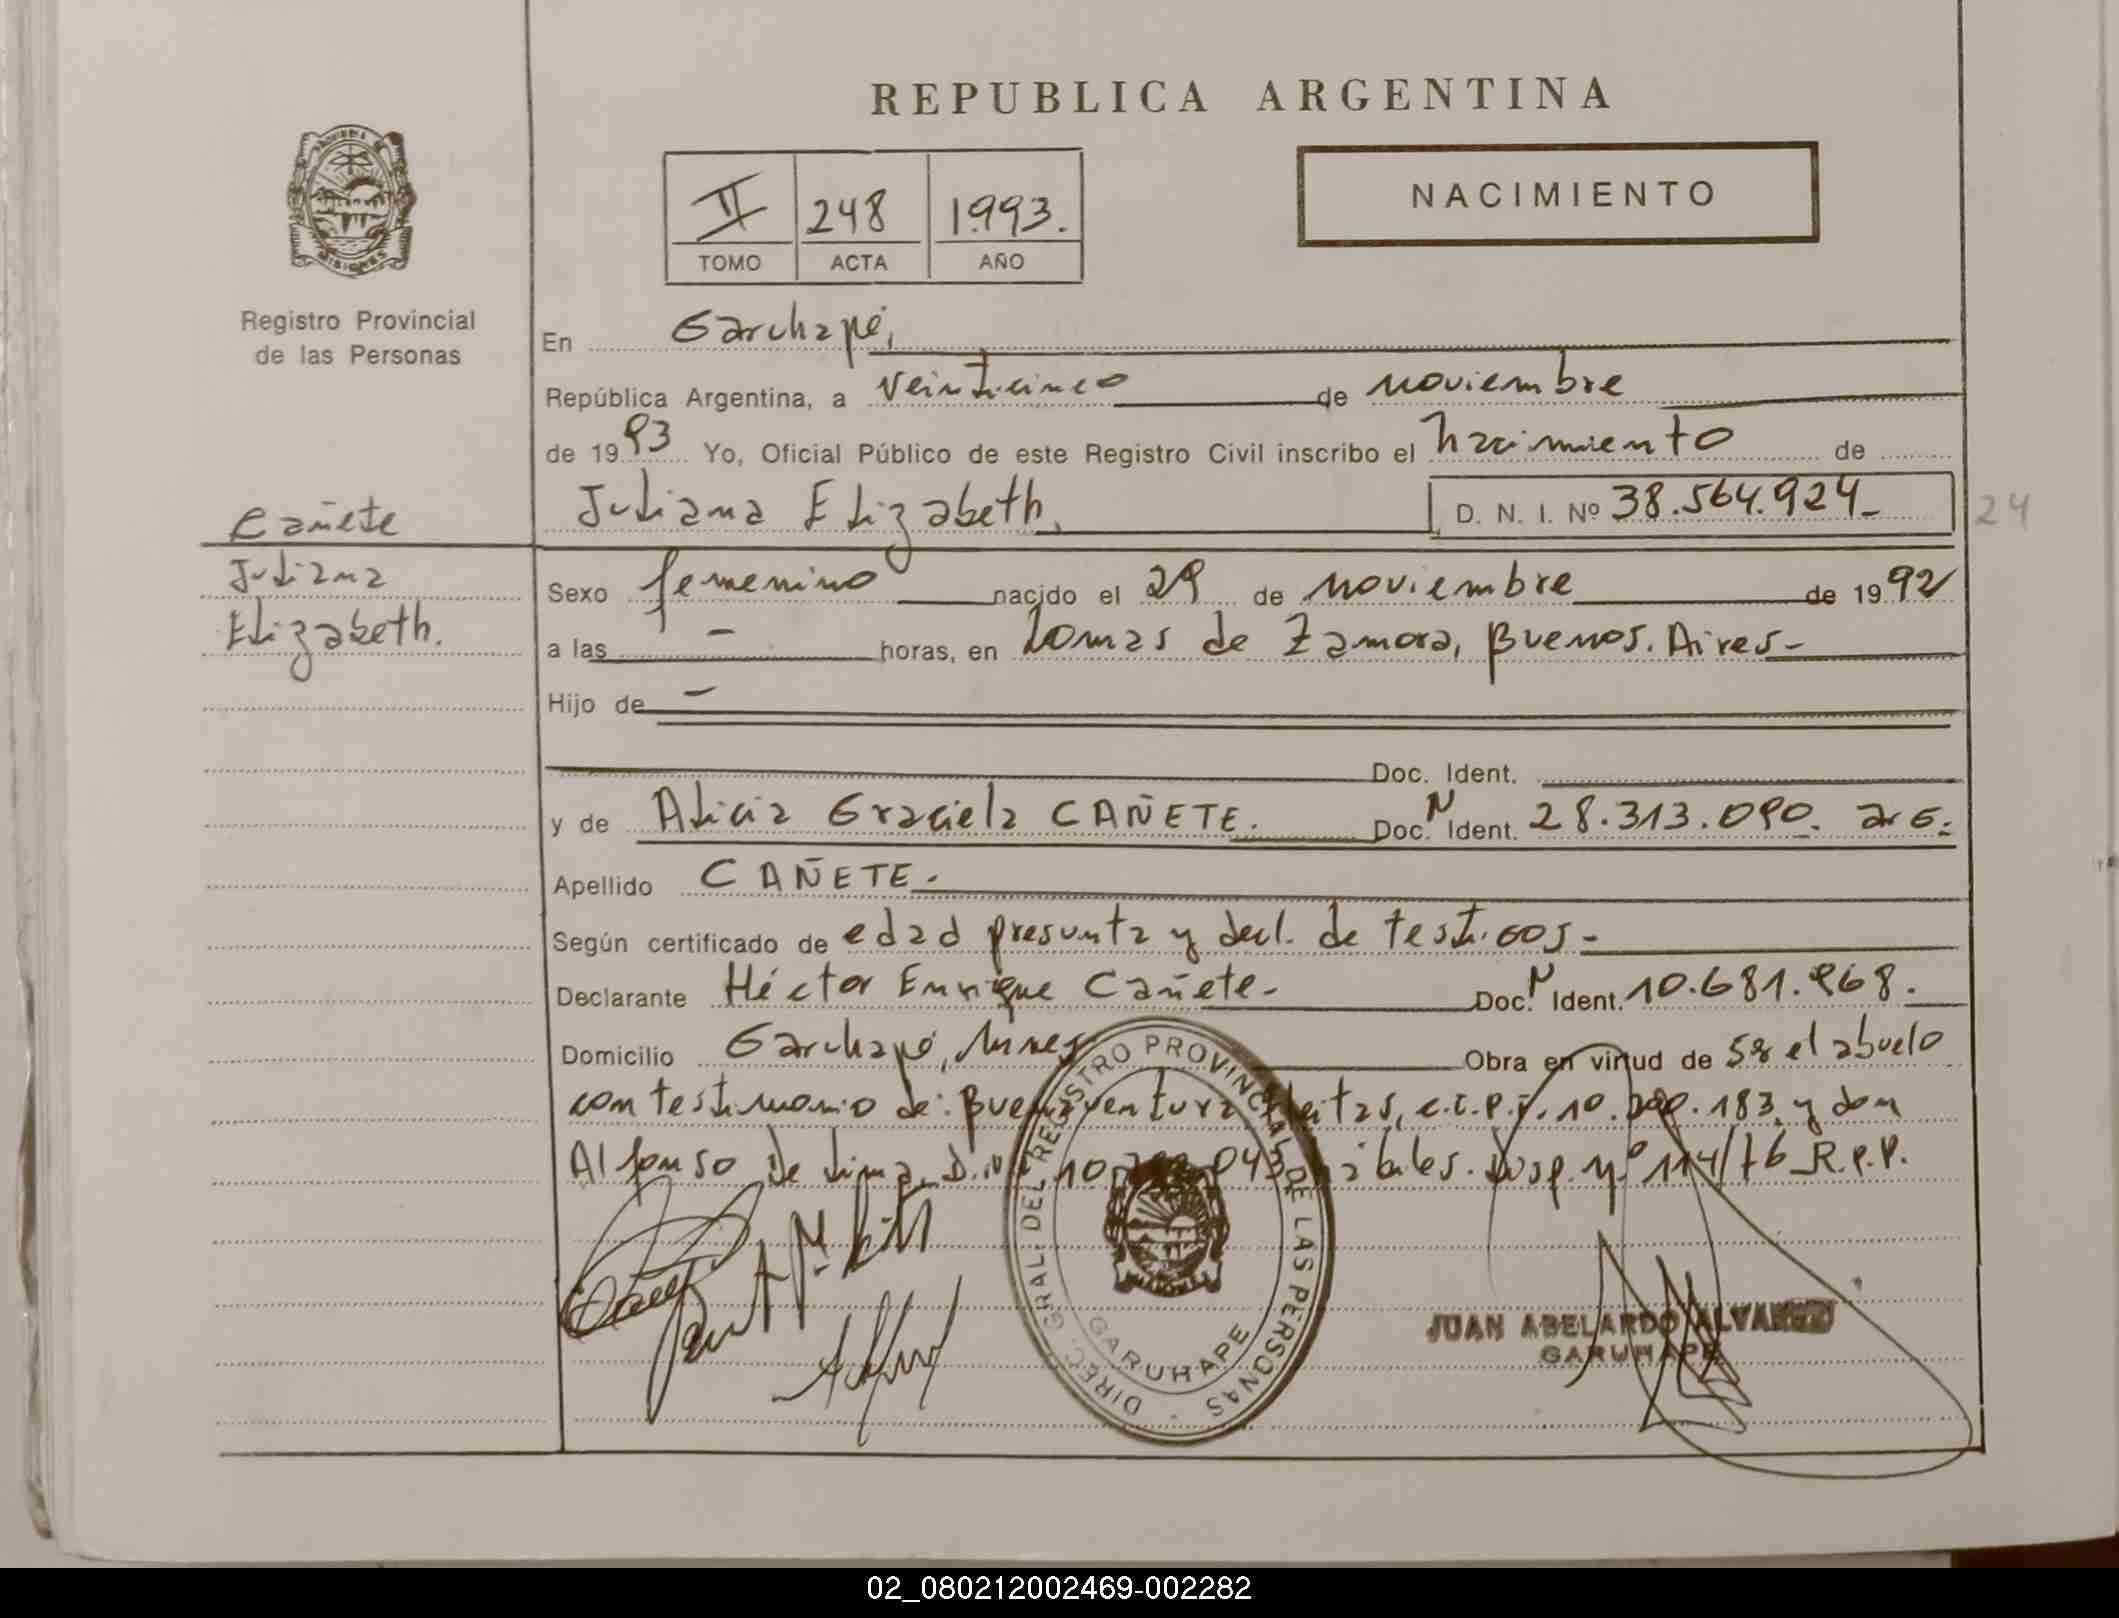 REPUBLICA ARGENTINA
NACIMIENTO
II 248 1993.
TOMO ACTA AÑO
MISIONES
Registro Provincial
de las Personas
En Garuhapé,
República Argentina, a veinticinco de noviembre
de 1993 Yo, Oficial Público de este Registro Civil inscribo el nacimiento de
Juliana Elizabeth, D. N. I. Nº 38.564.924- 24
Cañete
Juliana
Elizabeth.
Sexo femenino nacido el 29 de noviembre de 1992
a las - horas, en Lomas de Zamora, Buenos. Aires-
Hijo de -
Doc. Ident.
y de Alicia Graciela CAÑETE. Doc. N Ident. 28.313.090. arg.
Apellido CAÑETE.
Según certificado de edad presunta y decl. de testigos-
Declarante Héctor Enrique Cañete- Doc. N Ident. 10.681.968.
Domicilio Garuhapé, Mnes Obra en virtud de ser el abuelo
con testimonio de: Buenaventura c.i.p. 10. .183 y don
Alfonso de Lima, D. 10. 043 hábiles. Disp. nº 114/76 R.P.P.
DIREC. GRAL. DEL REGISTRO PROVINCIAL DE LAS PERSONAS
GARUHAPE
JUAN ABELARDO
GARUHAPE
02_080212002469-002282